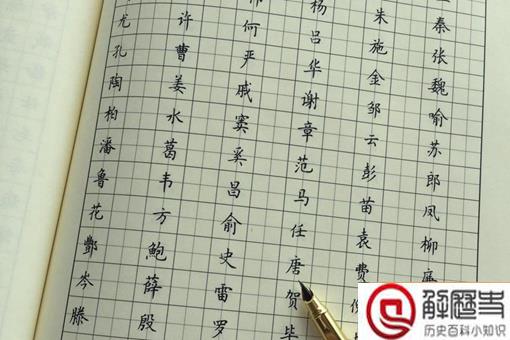 杨朱秦
尤许何吕施张
孔曹严华金魏
陶姜戚谢邹喻
柏水窦章云苏
潘葛奚范彭郎
鲁韦昌马苗凤
花方俞任袁柳
酆鲍史唐费廉
岑薛雷贺倪
滕殷罗毕
解历史
历史百科小知识